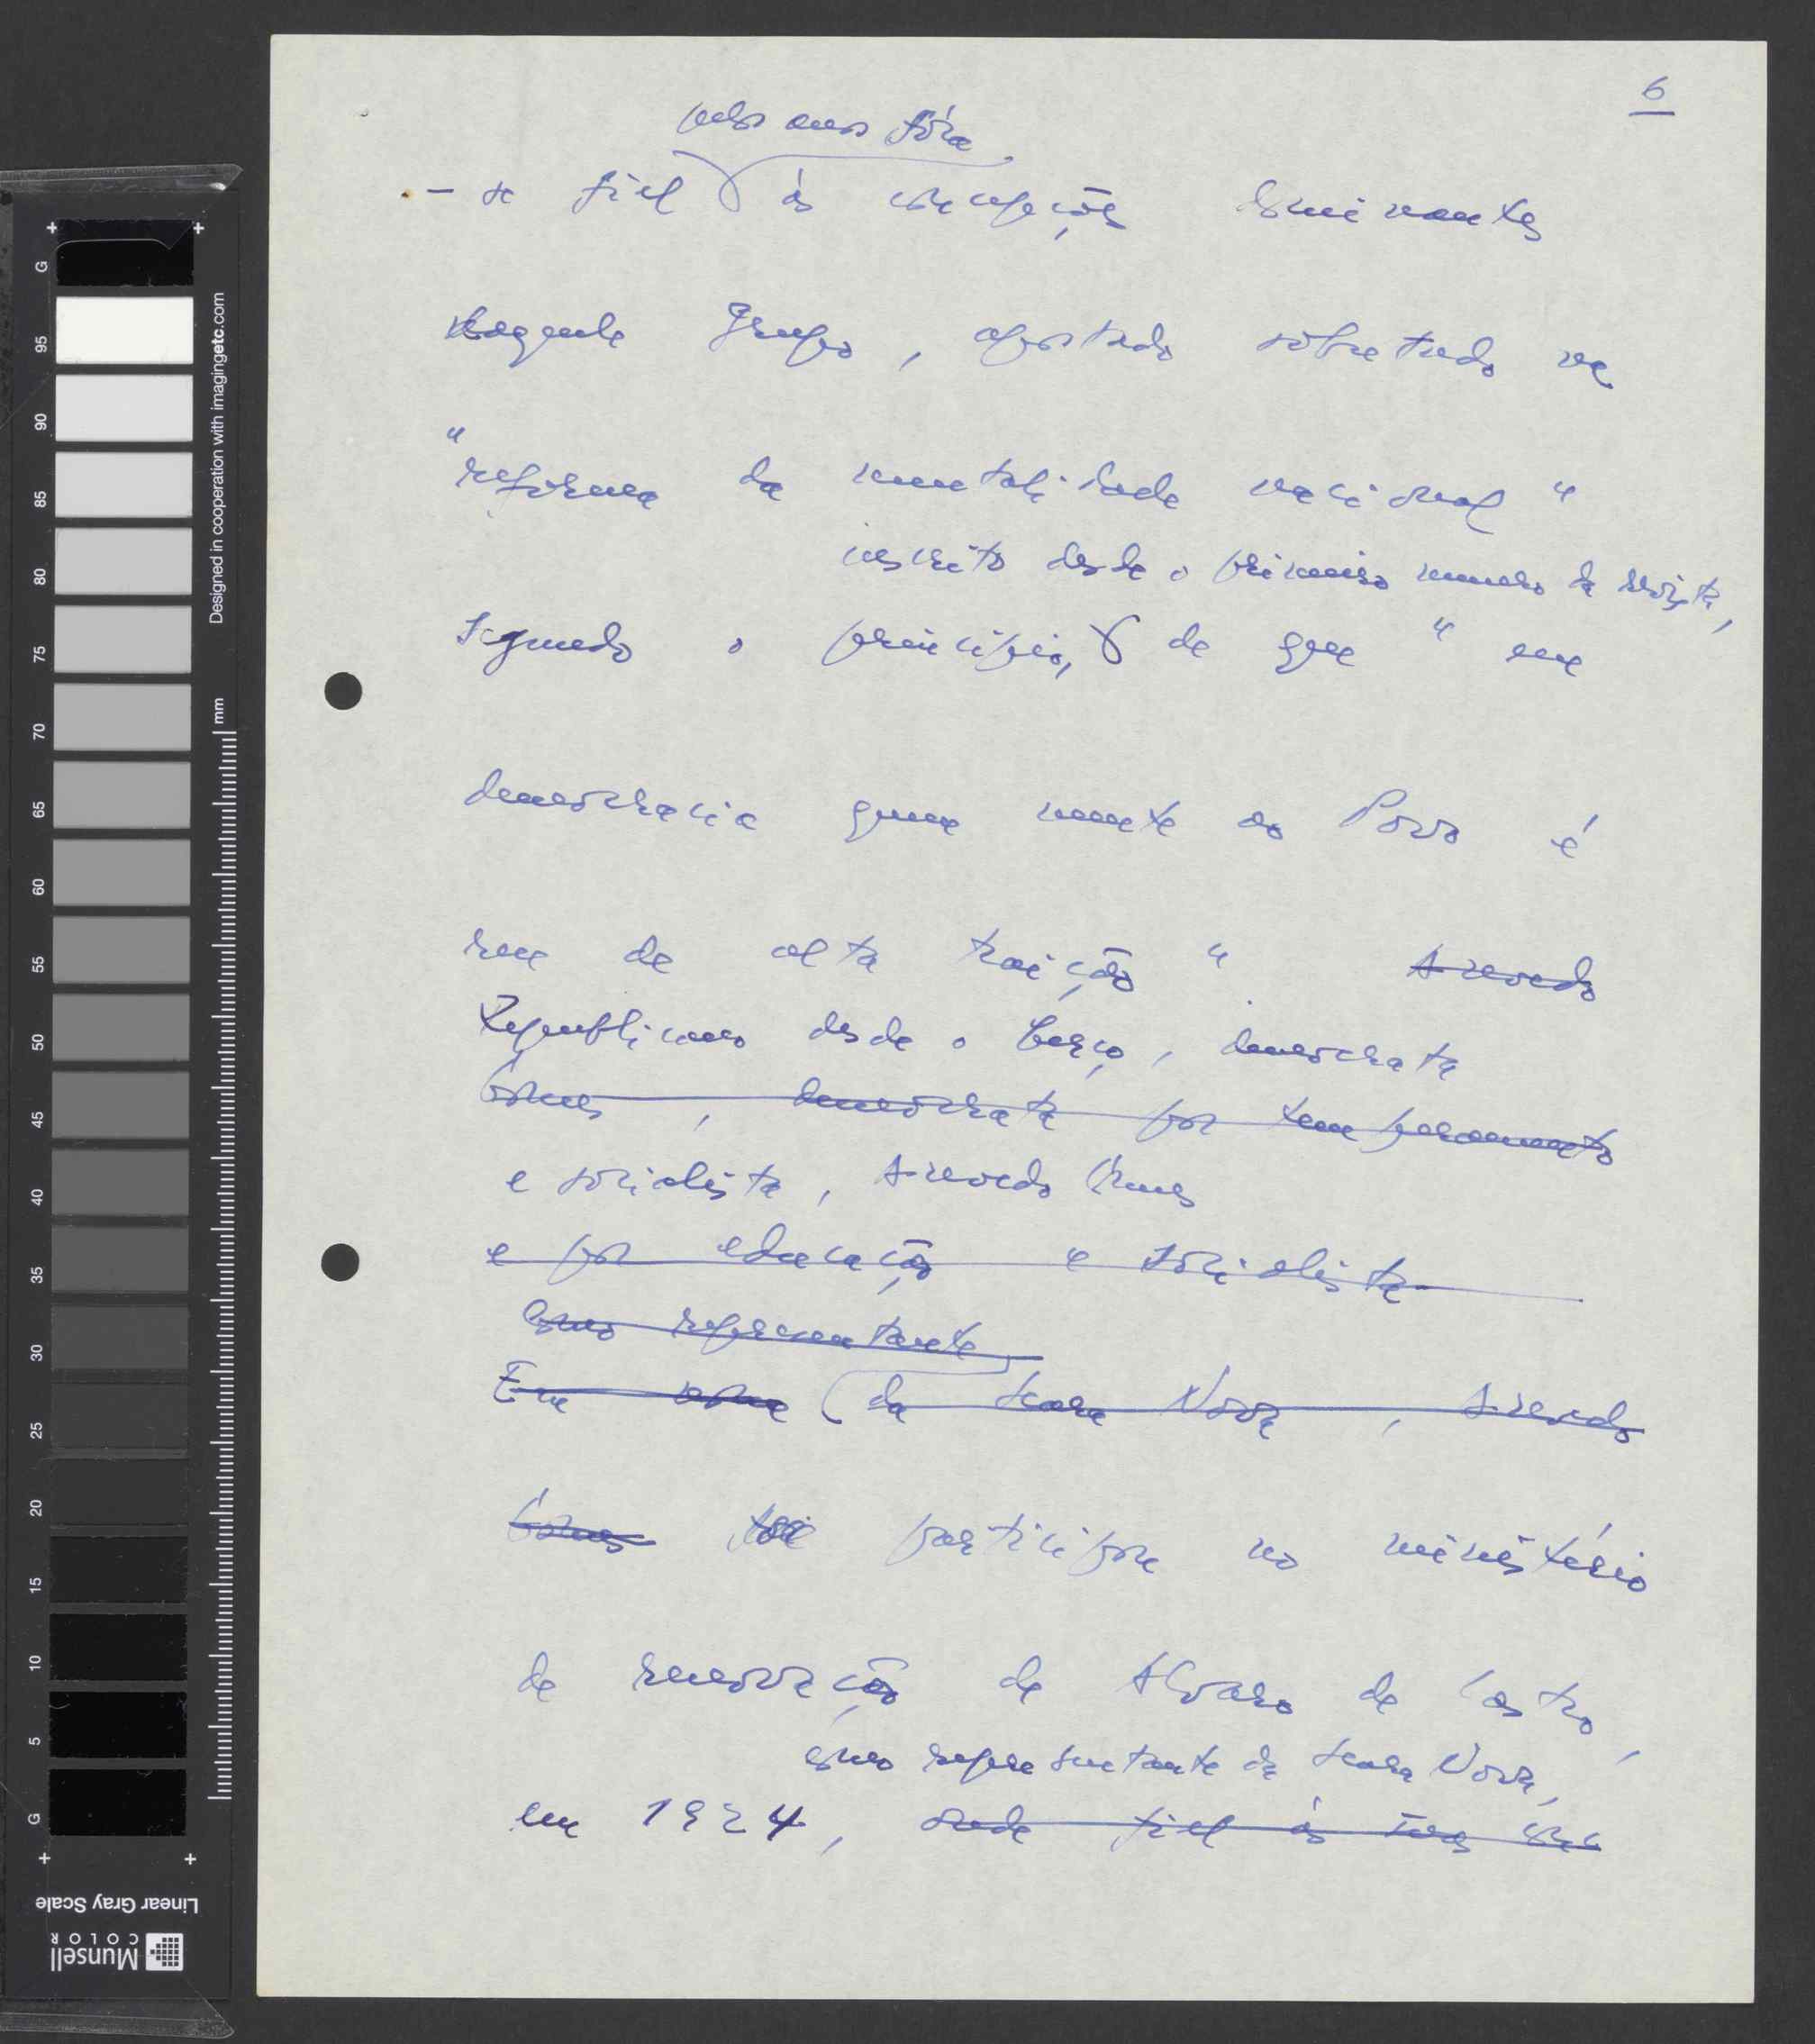 6
pelos anos fóra
- se fiel às concepções dominantes
naquele Grupo, apostado sobretudo na
"reforma da mentalidade nacional"
inscrito desde o primeiro numero da Revista,
segundo o princípio, de que "em
democracia quem mente ao Povo é
reu de alta traição". Azevedo
Republicano desde o berço, democrata
Gomes, democrata por temperamento
e socialista, Azevedo Gomes
e por educação e socialista
Como representante
Em nome da Seara Nova, Azevedo
Gomes participou no ministério
de renovação de Alvaro de Castro,
como representante da Seara Nova,
em 1924, fiel às
Designed in cooperation with imagingetc.com
mm
G 95 90 85 80 75 70 65 60 55 50 45 40 35 30 25 20 15 10 5 G
Linear Gray Scale
Munsell
COLOR